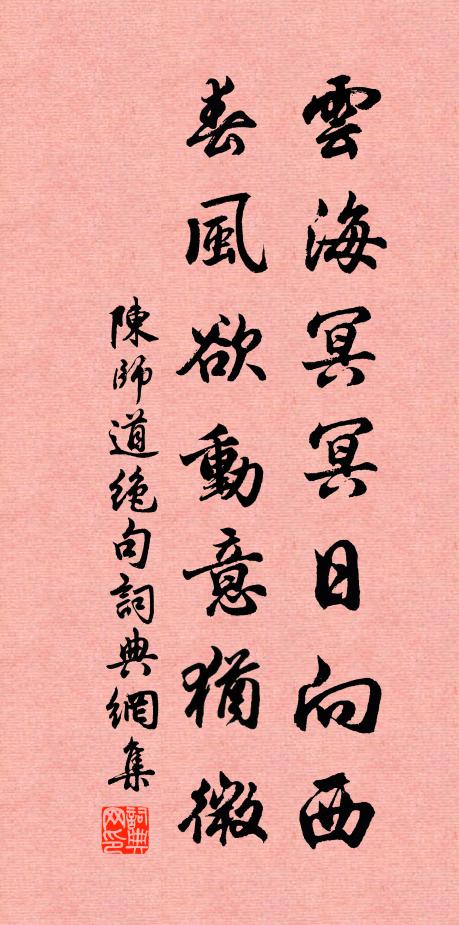 雲海冥冥日向西
春風欲動意猶微
陳師道絶句詞典網集
詞典网印